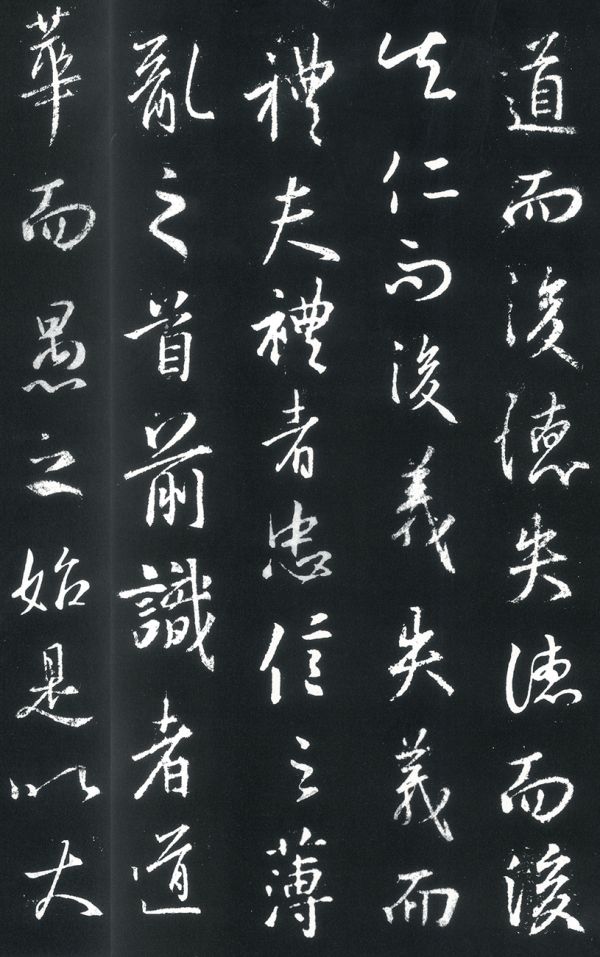 道而後德失德而後
失仁而後義失義而
禮夫禮者忠信之薄
亂之首前識者道
華而愚之始是以大